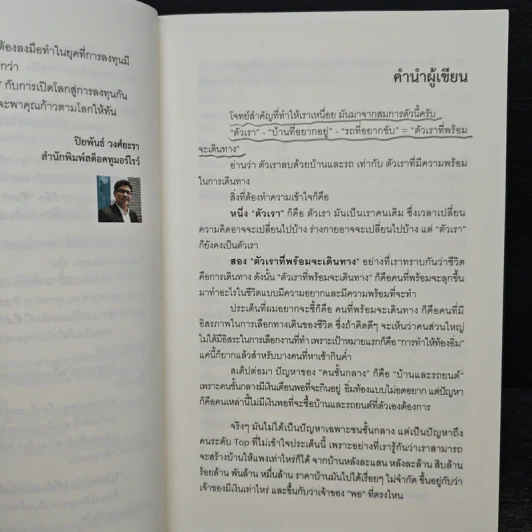 ต้องลงมือทำในยุคที่การลงทุนมี
กว่า
กับการเปิดโลกสู่การลงทุนกัน
จะพาคุณก้าวตามโลกให้ทัน
ปิยพันธ์ วงศ์ยะรา
สำนักพิมพ์สต็อคทูมอร์โรว์
คำนำผู้เขียน
โจทย์สำคัญที่ทำให้เราเหนื่อย มันมาจากสมการตัวนี้ครับ
"ตัวเรา" - "บ้านที่อยากอยู่" - "รถที่อยากขับ" = "ตัวเราที่พร้อม
จะเดินทาง"
อ่านว่า ตัวเราลบด้วยบ้านและรถ เท่ากับ ตัวเราที่มีความพร้อม
ในการเดินทาง
สิ่งที่ต้องทำความเข้าใจก็คือ
หนึ่ง "ตัวเรา" ก็คือ ตัวเรา มันเป็นเราคนเดิม ซึ่งเวลาเปลี่ยน
ความคิดอาจจะเปลี่ยนไปบ้าง ร่างกายอาจจะเปลี่ยนไปบ้าง แต่ "ตัวเรา"
ก็ยังคงเป็นตัวเรา
สอง "ตัวเราที่พร้อมจะเดินทาง" อย่างที่เราทราบกันว่าชีวิต
คือการเดินทาง ดังนั้น "ตัวเราที่พร้อมจะเดินทาง" ก็คือคนที่พร้อมจะลุกขึ้น
มาทำอะไรในชีวิตแบบมีความอยากและมีความพร้อมที่จะทำ
ประเด็นที่ผมอยากจะชี้ก็คือ คนที่พร้อมจะเดินทาง ก็คือคนที่มี
อิสรภาพในการเลือกทางเดินของชีวิต ซึ่งถ้าคิดดีๆ จะเห็นว่าคนส่วนใหญ่
ไม่ได้มีอิสระในการเลือกงานที่ทำ เพราะเป้าหมายแรกก็คือ "การทำให้ท้องอิ่ม"
แค่นี้ก็ยากแล้วสำหรับบางคนที่หาเช้ากินค่ำ
สเต็ปต่อมา ปัญหาของ "คนชั้นกลาง" ก็คือ "บ้านและรถยนต์"
เพราะคนชั้นกลางมีเงินเดือนพอที่จะกินอยู่ อิ่มท้องแบบไม่อดอยาก แต่ปัญหา
ก็คือคนเหล่านี้ไม่มีเงินพอที่จะซื้อบ้านและรถยนต์ที่ตัวเองต้องการ
จริงๆ มันไม่ได้เป็นปัญหาเฉพาะชนชั้นกลาง แต่เป็นปัญหาถึง
คนระดับ Top ที่ไม่เข้าใจประเด็นนี้ เพราะอย่างที่เรารู้กันว่าเราสามารถ
จะสร้างบ้านให้แพงเท่าไหร่ก็ได้ จากบ้านหลังละแสน หลังละล้าน สิบล้าน
ร้อยล้าน พันล้าน หมื่นล้าน ราคาบ้านมันไปได้เรื่อยๆ ไม่จำกัด ขึ้นอยู่กับว่า
เจ้าของมีเงินเท่าไหร่ และขึ้นกับว่าเจ้าของ "พอ" ที่ตรงไหน